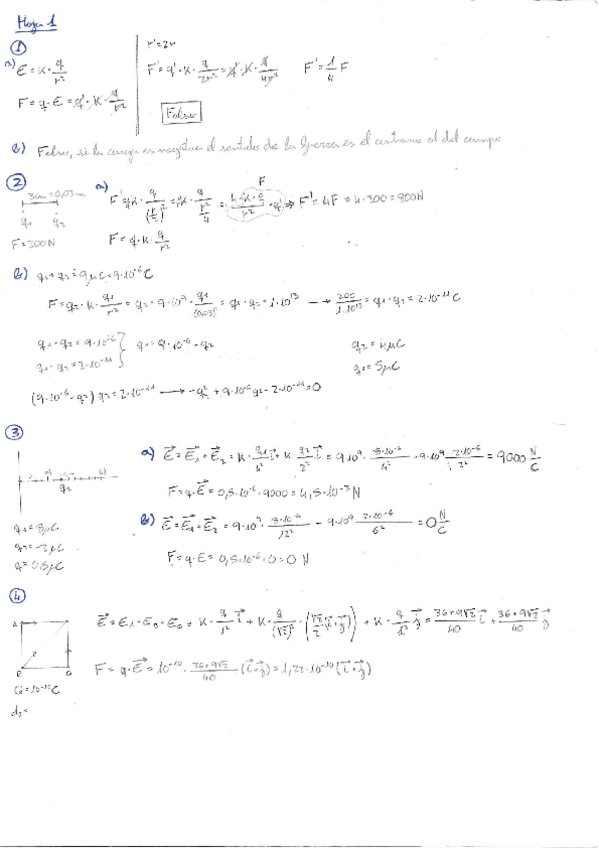 Hoja 1
①
a) E = K · q/r²
F = q · E = q' · K · q/r²
r' = 2r
F' = q' · K · q/2r² = q' · K · q/4r²   F' = 1/4 F
Falso
b) Falso, si la carga es negativa el sentido de la fuerza es el contrario al del campo
②
3cm = 0,03m
q1 q2
F = 200N
a) F' = q · K · q/(r/2)² = q · K · q/(r²/4) = → F' = 4F = 4 · 200 = 800N
F
F = q · K · q/r²
b) q1 + q2 = 9μC = 9·10⁻⁶ C
F = q2 · K · q1/r² = q2 · 9·10⁹ · q1/(0,03)² = q1 · q2 = 1·10¹³ → 200/1·10¹³ = q1 · q2 = 2·10⁻¹¹ C
q1 + q2 = 9·10⁻⁶
q1 · q2 = 2·10⁻¹¹
q1 = 9·10⁻⁶ - q2
q2 = 4μC
q1 = 5μC
(9·10⁻⁶ - q2) q2 = 2·10⁻¹¹ → -q2² + 9·10⁻⁶ q2 - 2·10⁻¹¹ = 0
③
q2
q1 = 8μC
q2 = -2μC
q = 0,5μC
a) E = E1 + E2 = K · q1/4² i + K · q2/2² i = 9·10⁹ · 8·10⁻⁶/4² + 9·10⁹ 2·10⁻⁶/2² = 9000 N/C
F = q · E = 0,5·10⁻⁶ · 9000 = 4,5·10⁻³ N
b) E = E1 + E2 = 9·10⁹ · 8·10⁻⁶/12² - 9·10⁹ 2·10⁻⁶/6² = 0 N/C
F = q · E = 0,5·10⁻⁶ · 0 = 0 N
④
A
B C
Q = 10⁻¹⁰ C
E = K · q/1² i + K · q/(√2)² · (√2/2 (i + j)) + K · q/1² j = 36+9√2/40 i + 36+9√2/40 j
F = q · E = 10⁻¹⁰ · 36+9√2/40 (i + j) = 1,22·10⁻¹⁰ (i + j)